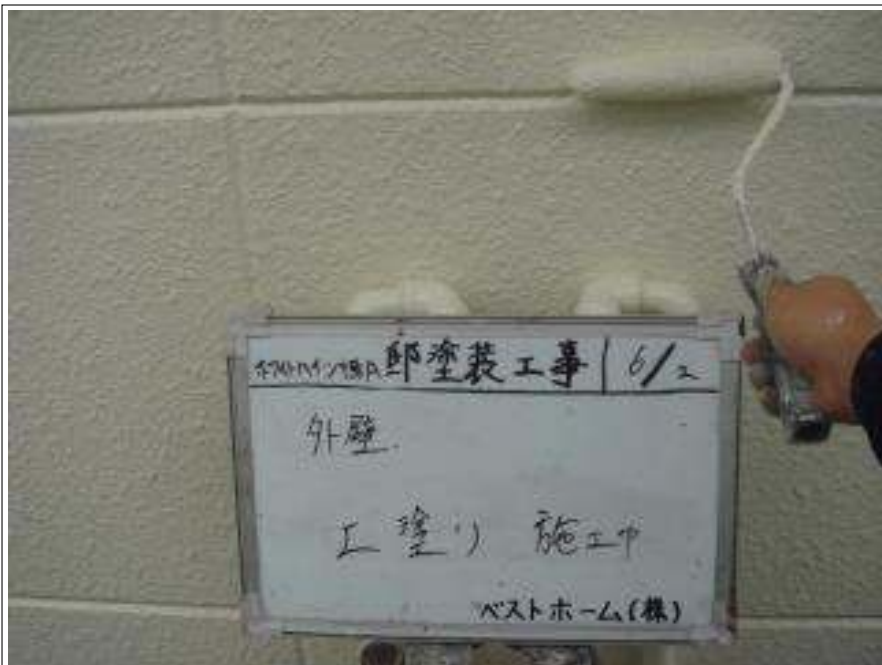 邸塗装工事 6/2
外壁
上塗り 施工中
ベストホーム(株)